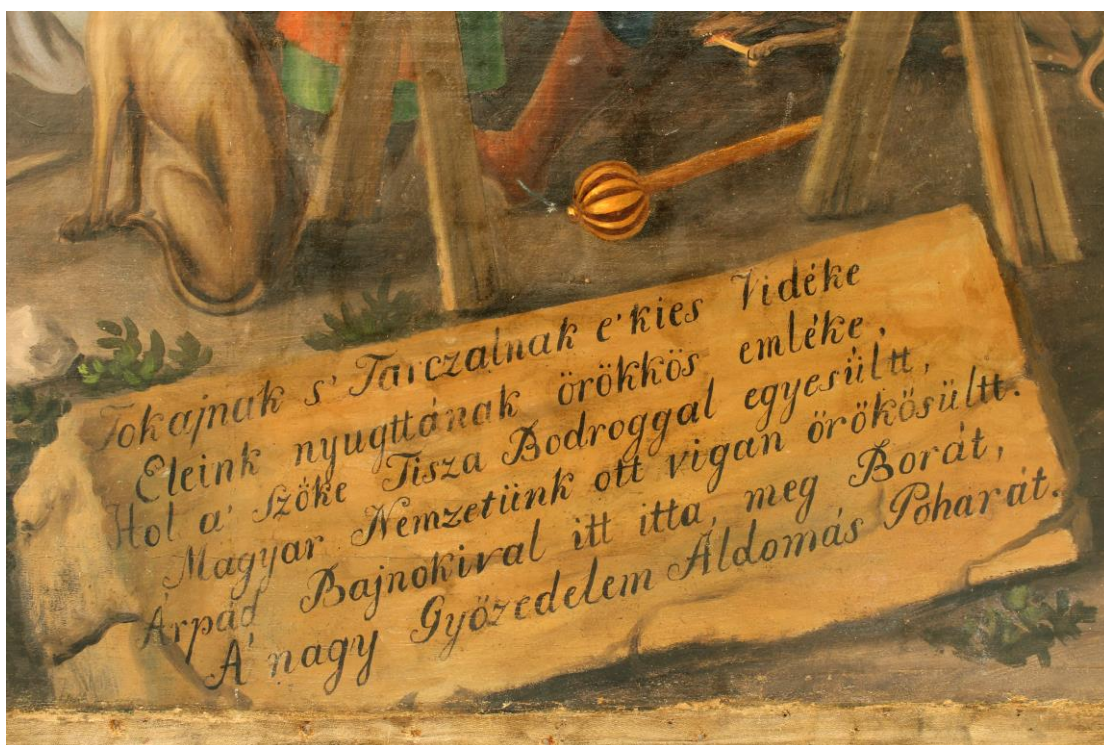 Tokajnak s' Tarczalnak e' kies Vidéke
Eleink nyugttának örökkös emléke,
Hol a' Szőke Tisza Bodroggal egyesültt,
Magyar Nemzetünk ott vigan örökösültt.
Árpád Bajnokival itt itta, meg Borát,
A' nagy Győzedelem Áldomás Poharát.